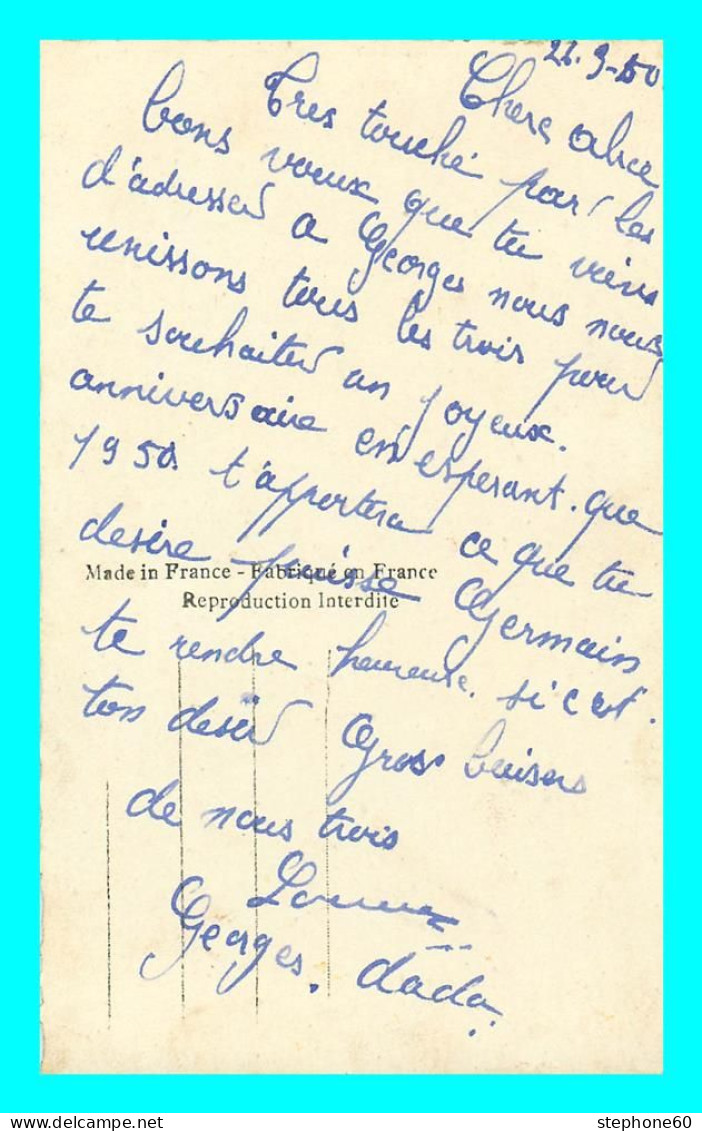 22.9-50
Chere alice
Tres touché par les
bons voeux que tu viens
d'adresser a Georges nous nous
unissons tous les trois pour
te souhaiter un joyeux.
anniversaire en esperant. que
1950 t'apportera ce que tu
desire puisse Germain
te rendre heureuse. si c'est.
ton desir Gros baisers
de nous trois
Georges. dada.
Made in France - Fabriqué en France
Reproduction Interdite
stephone60